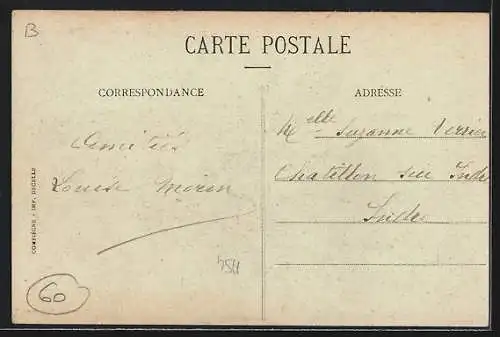 B
CARTE POSTALE
CORRESPONDANCE
ADRESSE
Amitiés
Louise Morin
Melle Suzanne Verrier
Chatillon sur Indre
Indre
COMPIÈGNE - IMP. DECELLE
H54
60